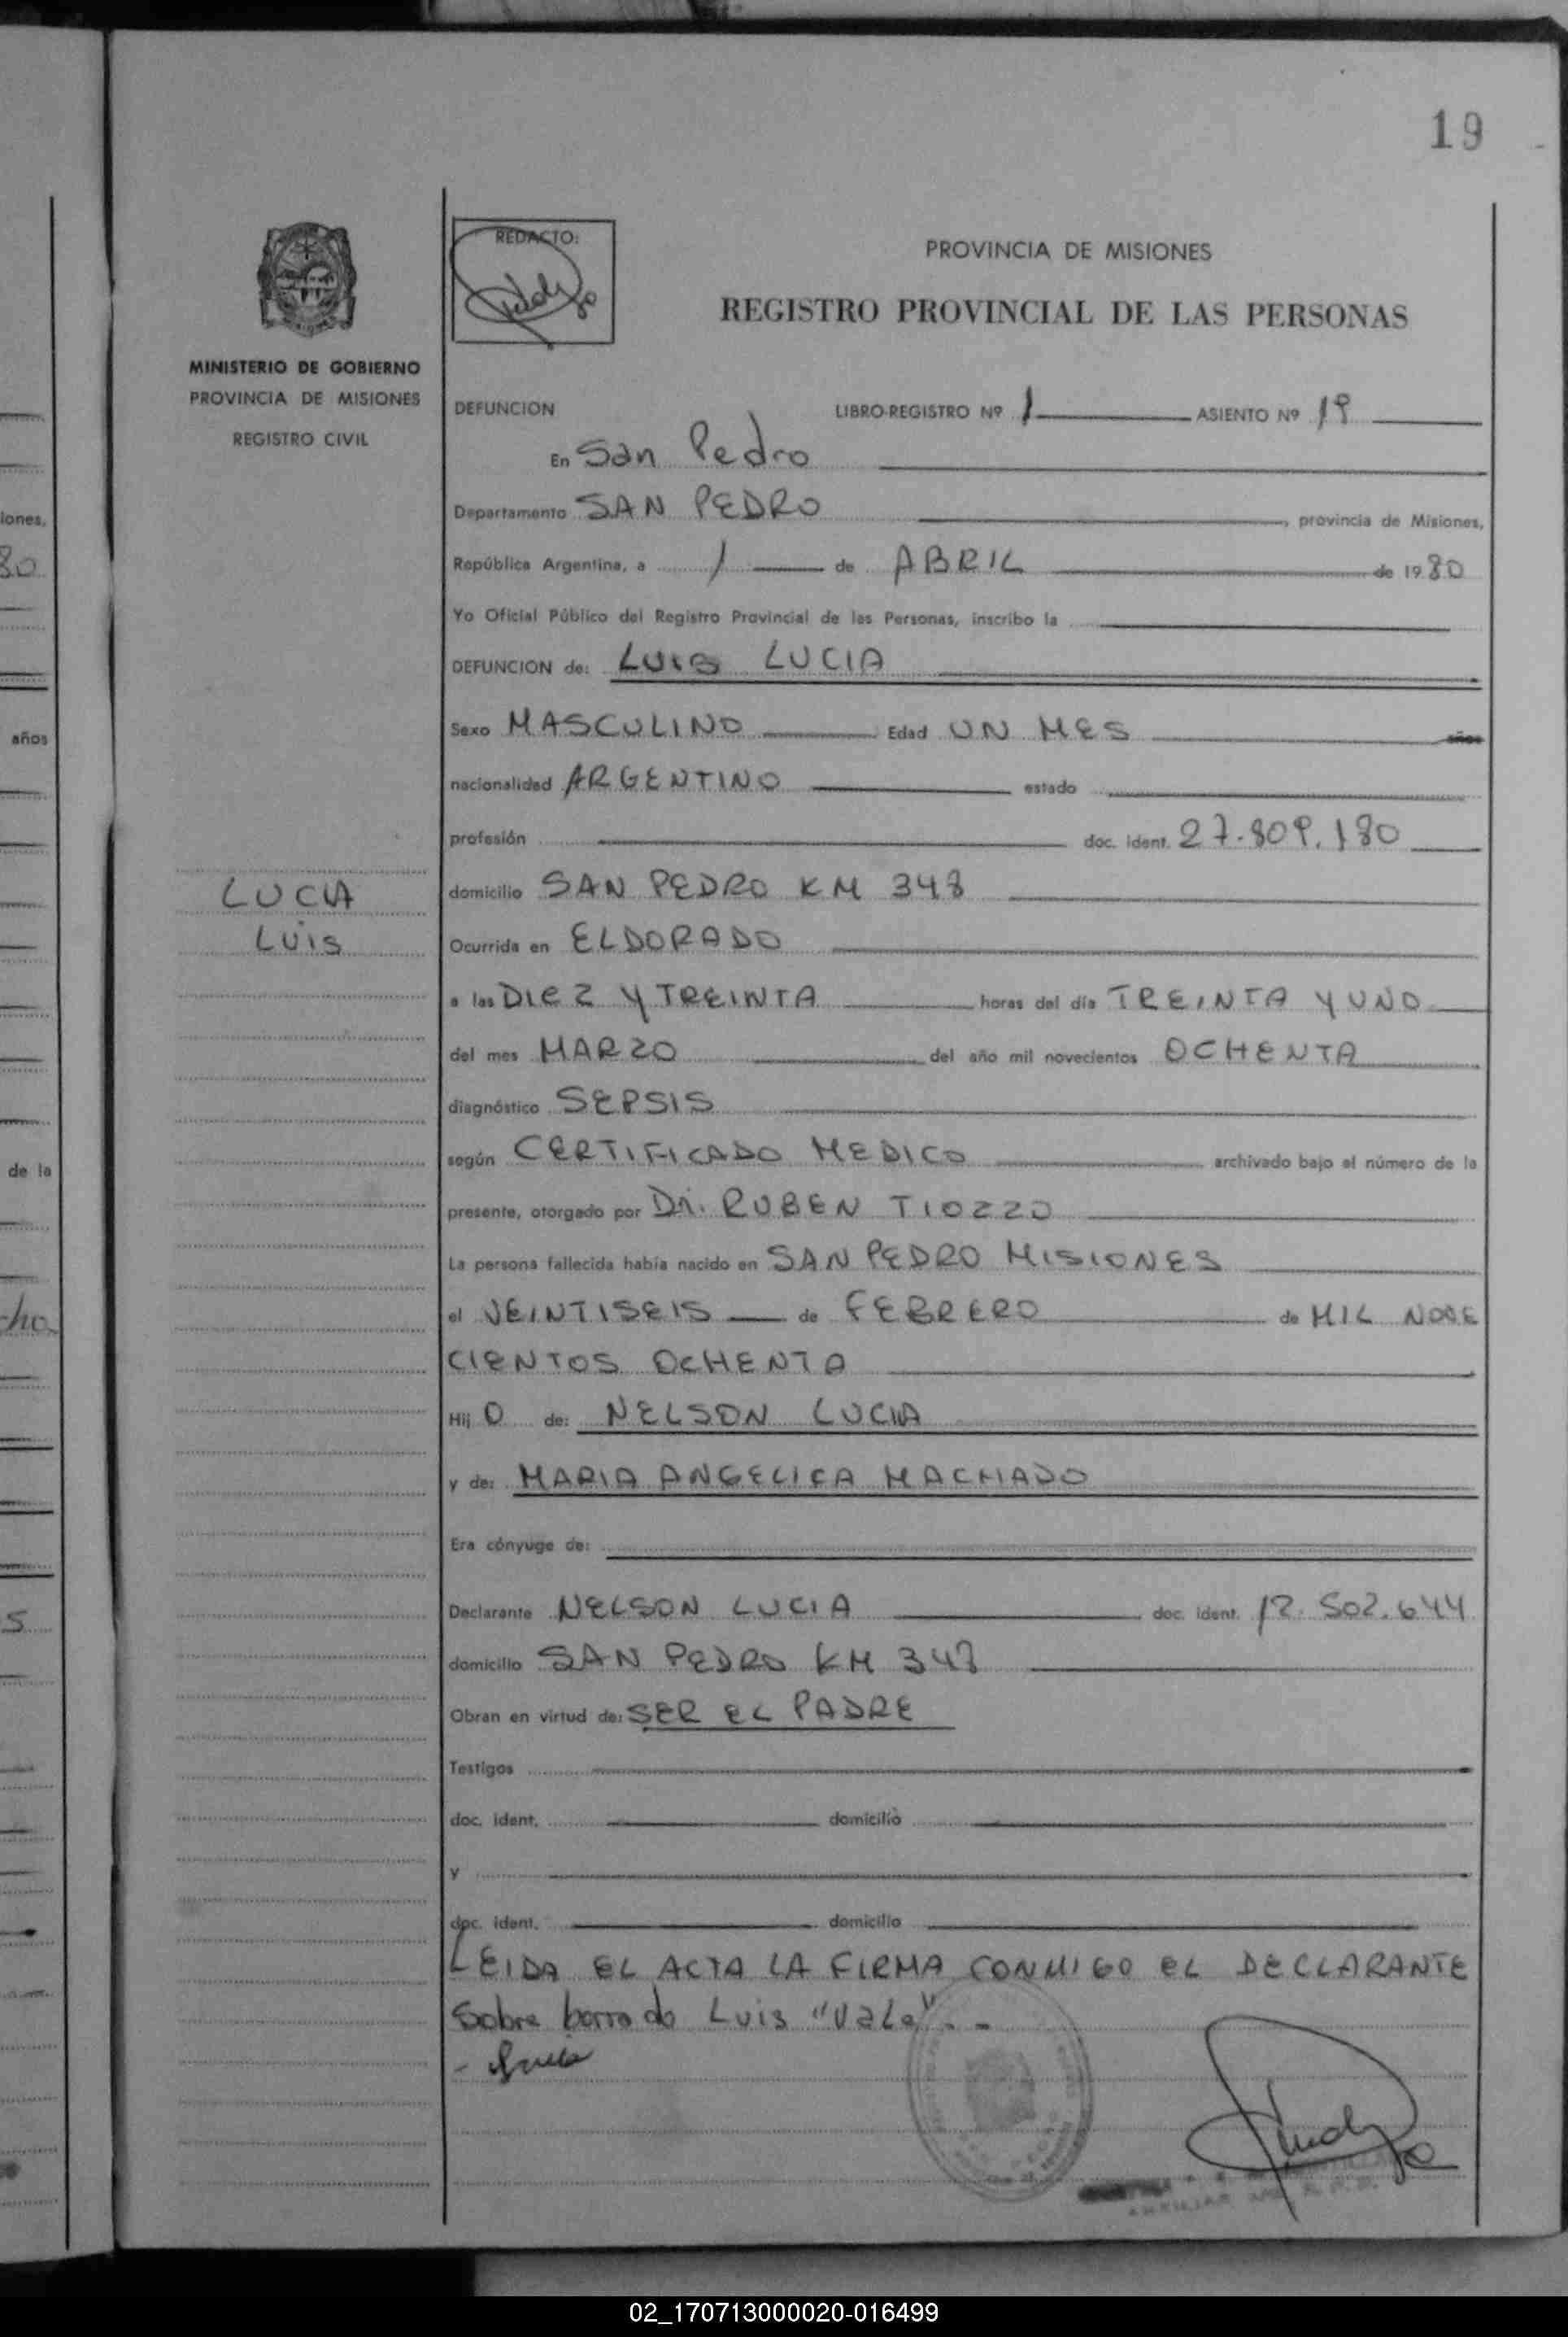 19
REDACTO:
PROVINCIA DE MISIONES
REGISTRO PROVINCIAL DE LAS PERSONAS
MINISTERIO DE GOBIERNO
PROVINCIA DE MISIONES
REGISTRO CIVIL
DEFUNCION LIBRO-REGISTRO Nº 1 ASIENTO Nº 19
En San Pedro
Departamento SAN PEDRO, provincia de Misiones,
República Argentina, a 1 de ABRIL de 1980
Yo Oficial Público del Registro Provincial de las Personas, inscribo la
DEFUNCION de: LUIS LUCIA
Sexo MASCULINO Edad UN MES años
nacionalidad ARGENTINO estado
profesión doc. ident. 27.809.180
LUCIA
LUIS
domicilio SAN PEDRO KM 348
Ocurrida en ELDORADO
a las DIEZ Y TREINTA horas del día TREINTA Y UNO
del mes MARZO del año mil novecientos OCHENTA
diagnóstico SEPSIS
según CERTIFICADO MEDICO archivado bajo el número de la
presente, otorgado por Dr. RUBEN TIOZZO
La persona fallecida había nacido en SAN PEDRO MISIONES
el VEINTISEIS de FEBRERO de MIL NOVE
CIENTOS OCHENTA
Hij O de: NELSON LUCIA
y de: MARIA ANGELICA MACHADO
Era cónyuge de:
Declarante NELSON LUCIA doc. ident. 12.502.644
domicilio SAN PEDRO KM 348
Obran en virtud de: SER EL PADRE
Testigos
doc. ident. domicilio
y
doc. ident. domicilio
LEIDA EL ACTA LA FIRMA CONMIGO EL DECLARANTE
Sobre borrado Luis "Vale"..
iones,
80
años
de la
cho
s
02_170713000020-016499